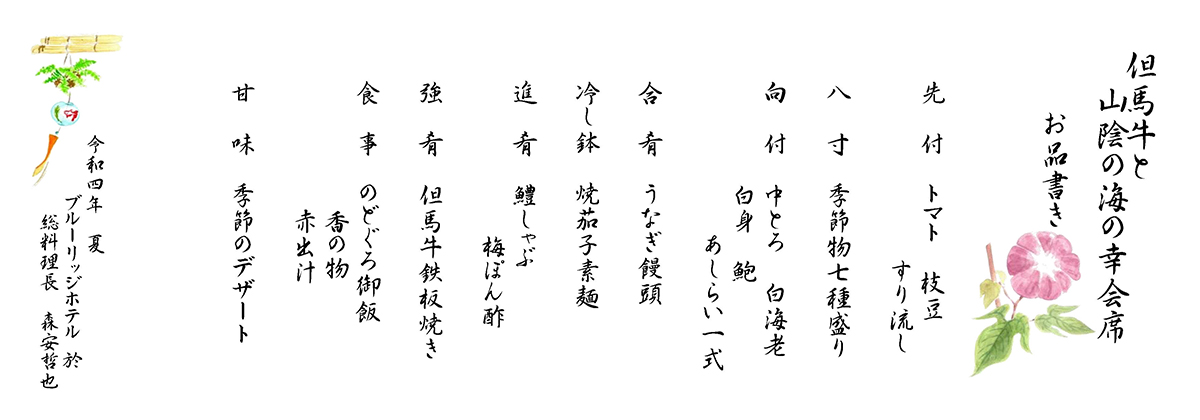 但馬牛と
山陰の海の幸会席
お品書き
先付 トマト 枝豆
すり流し
八寸 季節物七種盛り
向付 中とろ 白海老
白身 鮑
あしらい一式
合肴 うなぎ饅頭
冷し鉢 焼茄子素麺
進肴 鱧しゃぶ
梅ぽん酢
強肴 但馬牛鉄板焼き
食事 のどぐろ御飯
香の物
赤出汁
甘味 季節のデザート
令和四年 夏
ブルーリッジホテル 於
総料理長 森安哲也